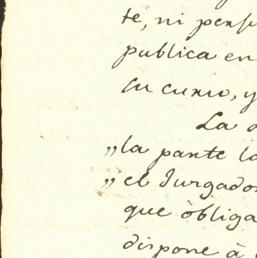 te, ni pensa
publica en
su curso, y
La a
„la parte la
„el Jurgado
que òbliga
dispone à